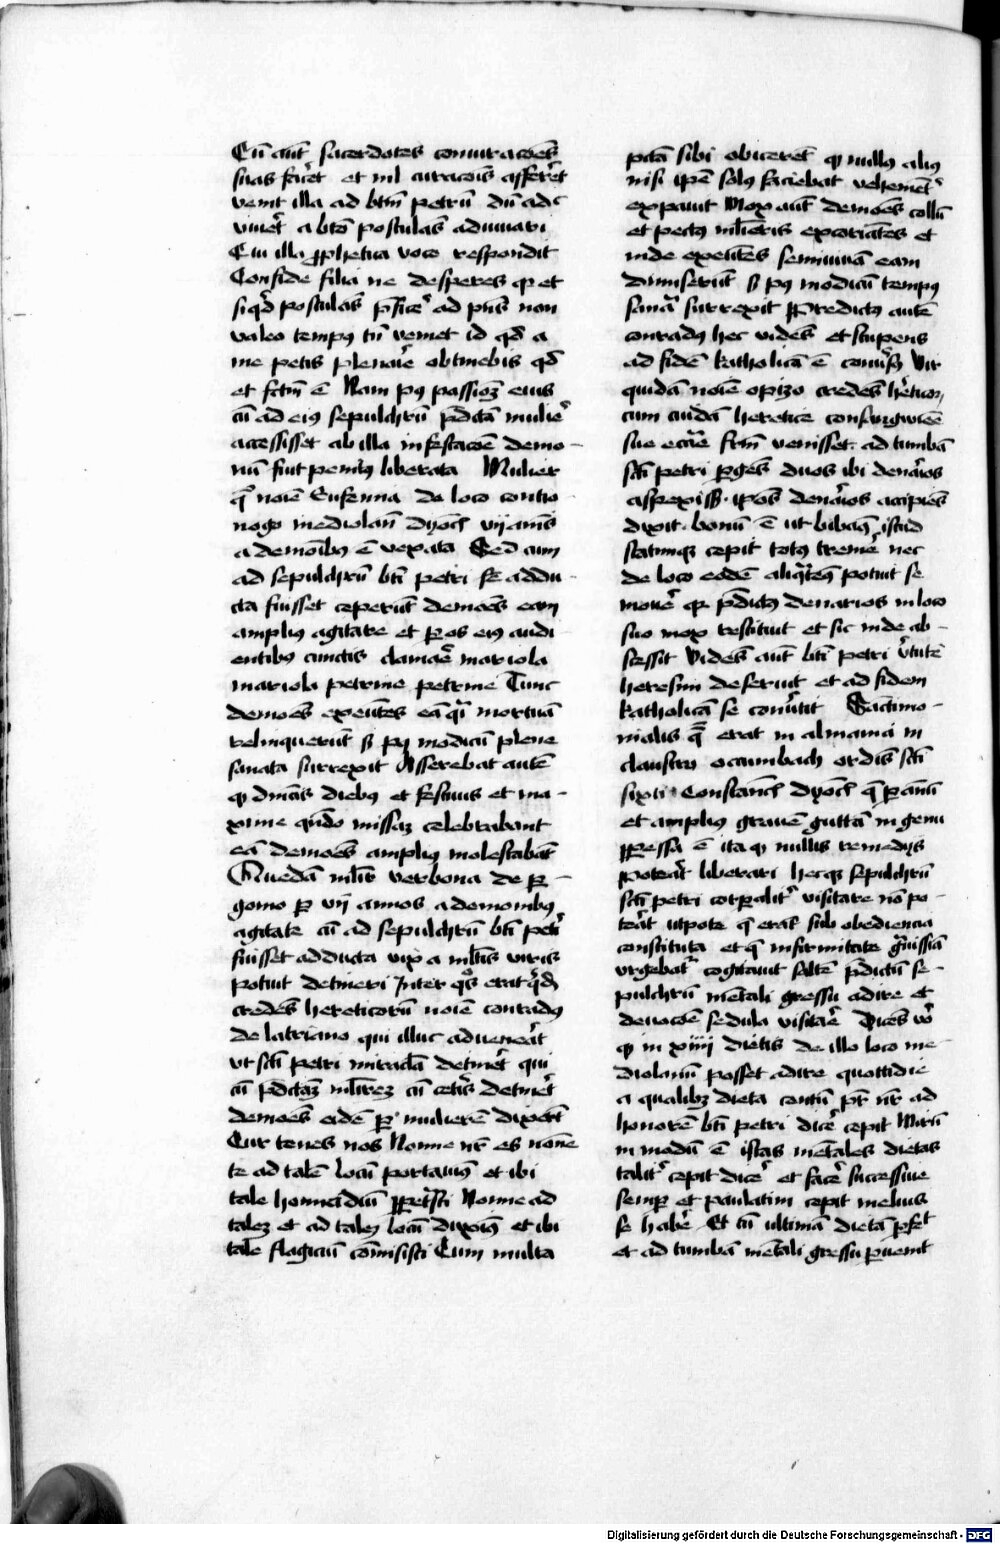 Cū aūt sacerdotes coniuracōes
suas facēt et nil curacōis afferēt
venit illa ad btm̄ petrū dū adc
viuēt a btō postulās adiuuari
Cui illa ꝓphetica voce respondit
Confide filia ne desperes qꝫ et
siqd̄ postulas p̄sicr̄ ad pn̄s non
valeo tempꝰ tn̄ veniet id qd̄ a
me petis plenarie obtinebis qd̄
et fctm̄ ē Nam pꝰ passioꝫ eius
cū ad eiꝰ sepulchrū p̄dcta muliēr
accessisset ab illa infestacōe demo-
nū fuit penitꝰ liberata Mulier
q̄ noīe Eufemia de loco corrio-
nogo mediolan̄ dyoc̄ vij annis
a demoībꝰ ē vexata Sed cum
ad sepulchrū bti petri sc̄ addu-
cta fuisset ceperūt demōes eam
ampliꝰ agitare et ꝑ os eiꝰ audi
entibꝰ cunctis clamāre mariola
mariola petrine petrine Tunc
demōes exeūtes eā qͥ mortuā
relinquerūt sꝫ pꝰ modicū plene
sanata surrexit Asserebat autē
qꝫ dn̄icis diebꝰ et festiuis et ma-
xime qn̄do missaꝫ celebrabant
eā demōes ampliꝰ molestabāt
Quedā mlr̄ verbona de ꝑ-
gomo ꝑ vij annos a demonibꝰ
agitate cū ad sepulchrū bti petri
fuisset adducta vix a mltis viris
potuit detineri Inter qͦs erat qͥdā
credēs hereticorū noīe conradꝰ
de latriano qui illuc aduenerat
vt scti petri miracla detinēt qui
cū p̄dctaꝫ mlr̄eꝫ cū cetīs detinēt
demōes eidē ꝑ mulierē dixerūt
Cur tenes nos Nonne nr̄ es nōne
te ad talē locū portauimꝰ et ibi
tale homicidiū ꝑpetrasti Nonne ad
taleꝫ et ad taleꝫ locū duximꝰ et ibi
tale flagiciū cōmisisti Cum multa
pctā sibi obicerēt qꝫ nullꝰ aliꝰ
nisi ipē solus faciebat vehementr̄
expauit Mox aūt demōes collū
et pectꝰ mlīeris excoriātes et
inde exeūtes semiuiuā eam
dimiserūt sꝫ pꝰ modicū tempꝰ
sana surrexit Predictꝰ autē
conradꝰ hec vidēs et stupens
ad fidē katholicā ē conūsꝰ Vir
quidā noīe opizo credēs heticorꝫ
cum cuidā heretice consanguinee
sue eccāe fctm̄ venisset ad tumbā
scti petri ꝑgēs duos ibi denarios
aspexisset ipōs denarios accipiēs
dixit bonū ē ut bibamꝰ istud
statimqꝫ cepit totꝰ tremē nec
de loco eodē aliqͣtenꝰ potuit se
mouēr qꝫ p̄dictꝰ denarios in loco
suo mox restituit et sic inde ab-
scessit Vidēs aūt bti petri v̄tutē
heresim deseruit et ad fidem
katholicā se conūtit Sāctimo-
nialis q̄ erat in almania in
claustro ocenbach ordīs scti
sixti Constanc̄ dyoc̄ q̄ ꝑ annū
et ampliꝰ grauē guttā in genu
ꝑpessa ē ita qꝫ nullis remedijs
poterat liberari hecqꝫ sepulchrū
scti petri corꝑalitr̄ visitare nō po-
terat utpote q̄ erat sub obediencia
constituta et q̄ infirmitate gͣuissiā
vrgebatr̄ cogitauit saltē p̄dictū se-
pulchrū mentali gressu adire et
deuocōe sedula visitare Dicēs vͦ
qꝫ in xiiij dietis de illo loco me-
diolanū posset adire quottidie
a qualibꝫ dieta centū pr̄ nr̄ ad
honorē bti petri dicē cepit Mirū
in modū ē istas mentales dietas
talitr̄ cepit dicē et facē successiue
semꝑ et paulatim cepit melius
se habē Et cū ultimā dietā ꝑfecit
et ad tumbā mentali gressu ꝑuenit
Digitalisierung gefördert durch die Deutsche Forschungsgemeinschaft - DFG